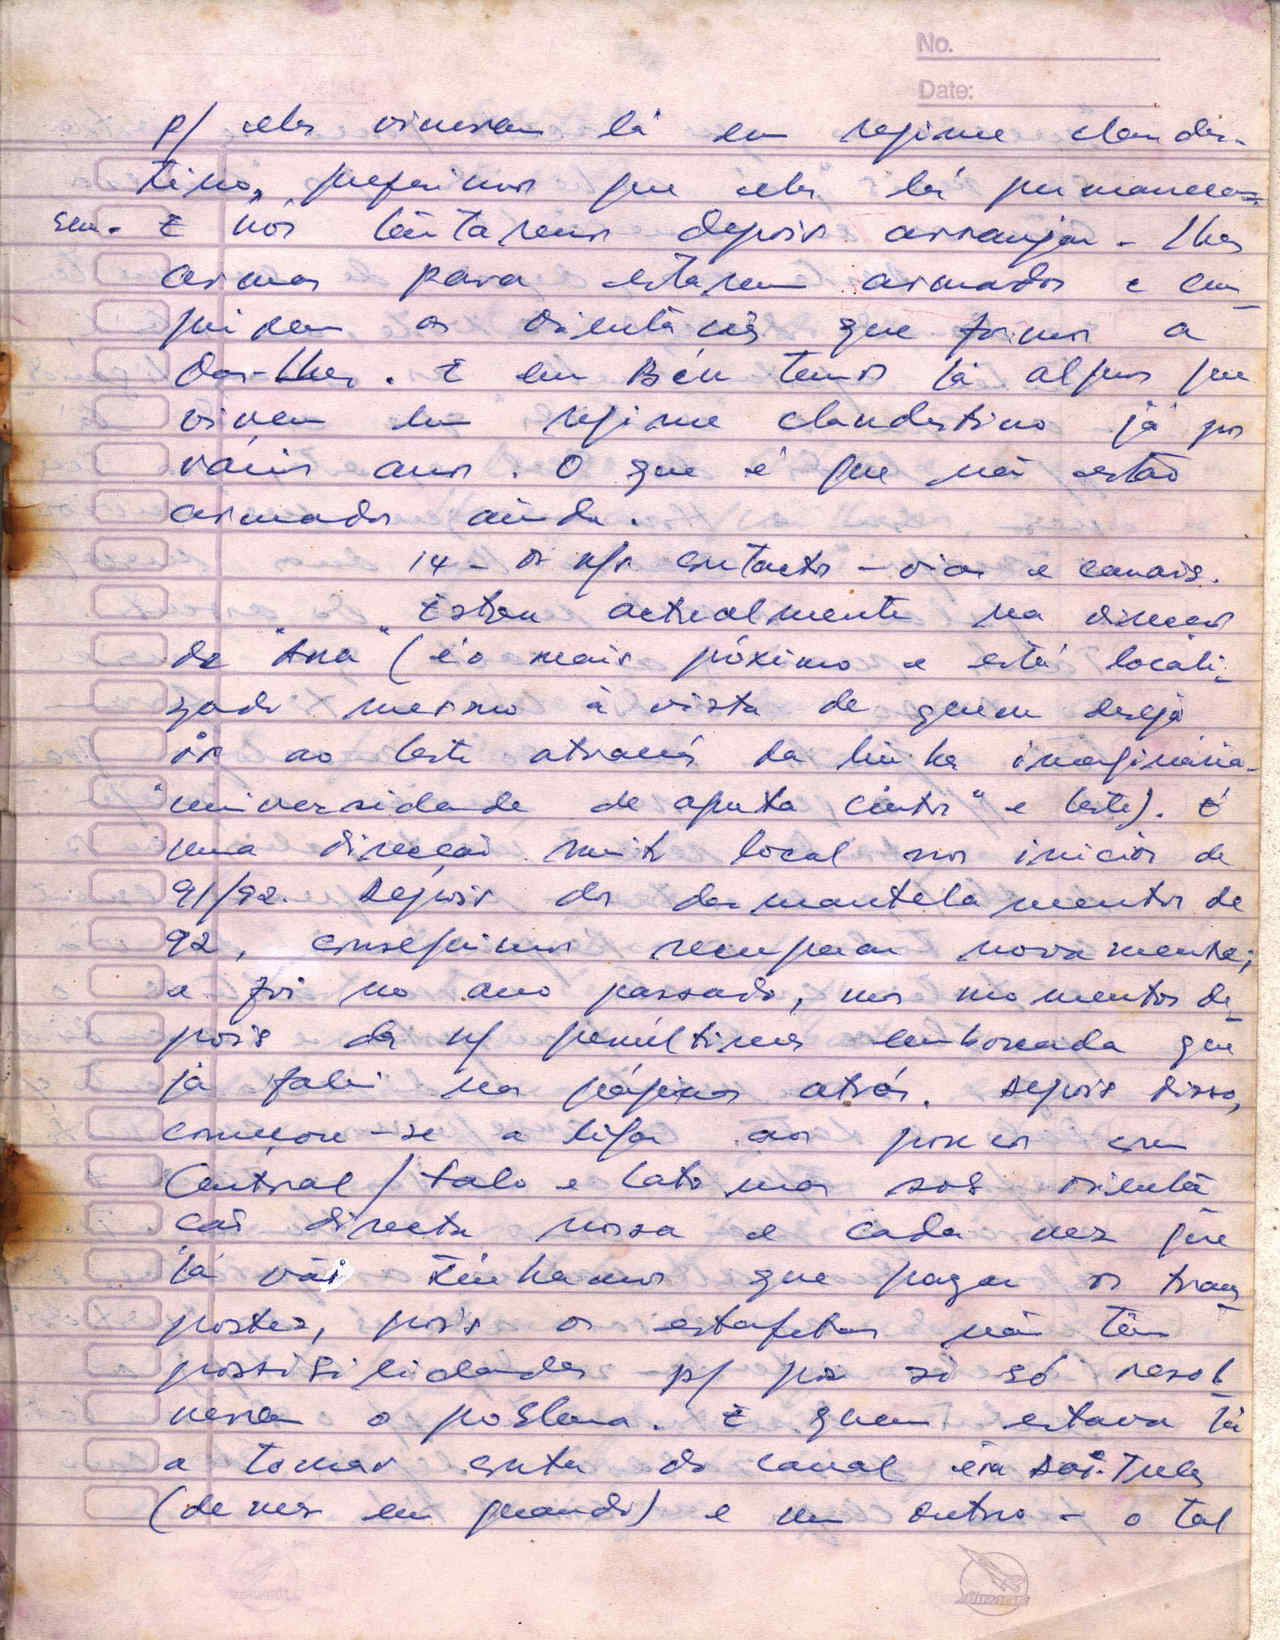 No.
Date:
p/ eles viverem lá em regime clandes-
tino, preferimos que eles lá permaneces-
sem. E nós tentaremos depois arranjar-lhes
armas para estarem armados e cum-
prirem as orientações que formos a
dar-lhes. E em Béu temos lá alguns que
vivem em regime clandestino já por
vários anos. O que é que não estão
armados ainda.
14 - Os n/s contactos - vias e canais.
Estou actualmente na direcção
de "Ana" (é o mais próximo e está locali-
zado mesmo à vista de quem deseja
ir ao leste através da linha imaginária
"universidade de aputa centro" e leste). É
uma direcção muito local nos inicios de
91/92. Depois dos desmantelamentos de
92, conseguimos recuperar novamente;
e foi no ano passado, nos momentos de-
pois da n/ penúltima emboscada que
já falei nas páginas atrás. Depois disso,
começou-se a ligar aos poucos com
Central/Falo e Lato mas sob orienta
ção directa nossa e cada vez que
lá vão tinhamos que pagar os trans-
portes, pois os estafetas não têm
possibilidades p/ por si só resol-
verem o problema. E quem estava lá
a tomar conta do canal era Doi-Tulas
(de vez em quando) e um outro - o tal